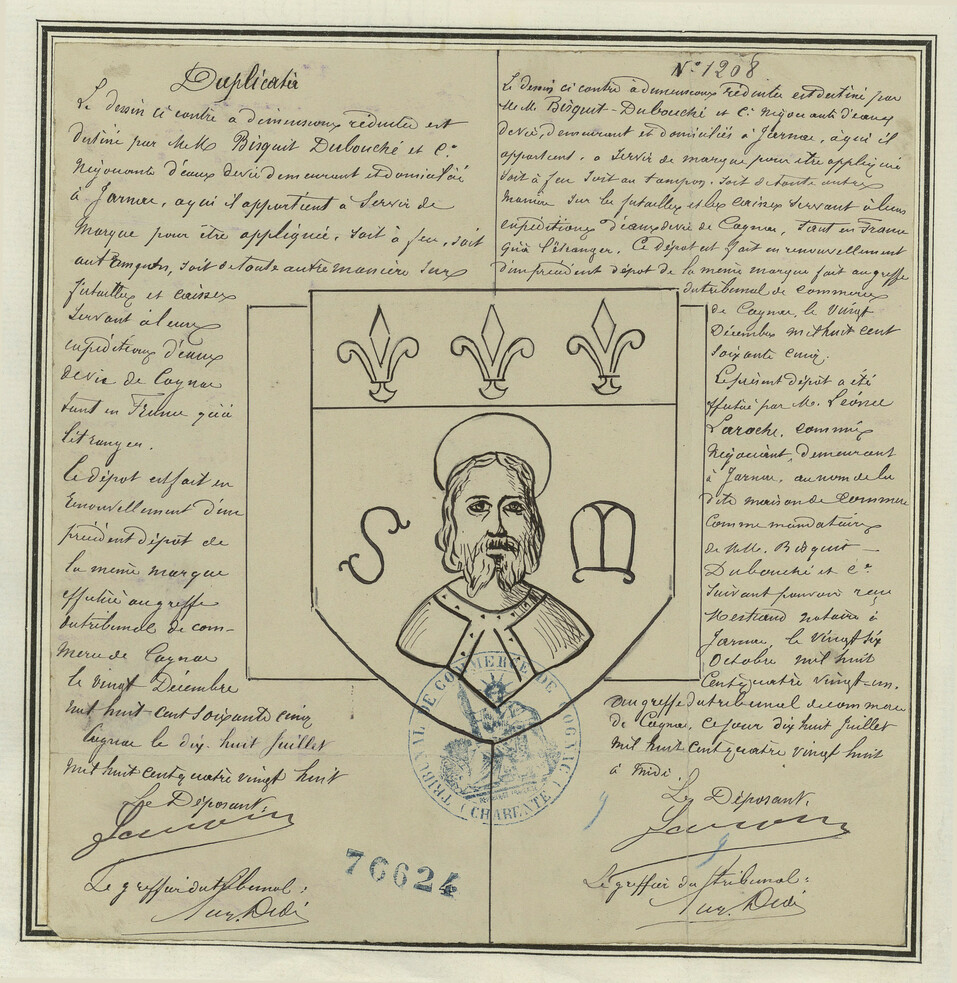 Duplicata
Le dessin ci contre à dimensions réduites est
destiné par M.M. Bisquit Dubouché et Cie
Négociants d'eaux de vie demeurant et domiciliés
à Jarnac, à qui il appartient à Servir de
Marque pour être appliquée, soit à feu, soit
au tampon, soit de toute autre manière sur
futailles et caisses
Servant à leurs
expéditions d'eaux
de vie de Cognac
tant en France qu'à
l'étranger.
Ce dépôt est fait en
renouvellement d'un
précédent dépôt de
la même marque
effectué au greffe
du tribunal de com-
merce de Cognac
le vingt Décembre
mil huit cent soixante cinq
Cognac le dix-huit Juillet
mil huit cent quatre vingt huit
Le Déposant,
Le greffier du tribunal:
N° 1208
Le dessin ci contre à dimensions réduites est destiné par
M.M. Bisquit-Dubouché et Cie Négociants d'eaux
de vie, demeurant et domiciliés à Jarnac, à qui il
appartient, à servir de marque pour être appliquée
soit à feu soit au tampon, soit de toute autre
manière sur les futailles et les caisses servant à leurs
expéditions d'eaux de vie de Cognac, tant en France
qu'à l'étranger. Ce dépôt est fait en renouvellement
d'un précédent dépôt de la même marque fait au greffe
du tribunal de commerce
de Cognac, le vingt
Décembre mil huit cent
soixante cinq.
Le présent dépôt a été
effectué par M. Léonce
Laroche, commis
Négociant, demeurant
à Jarnac, au nom de la
dite maison de commerce
comme mandataire
de M.M. Bisquit-
Dubouché et Cie
suivant pouvoir reçu
notaire à
Jarnac, le vingt six
Octobre mil huit
cent quatre vingt-un.
au greffe du tribunal de commerce
de Cognac, ce jour dix huit Juillet
mil huit cent quatre vingt huit
à midi.
Le Déposant,
Le greffier du tribunal:
S M
TRIBUNAL DE COMMERCE DE COGNAC
(CHARENTE)
76624